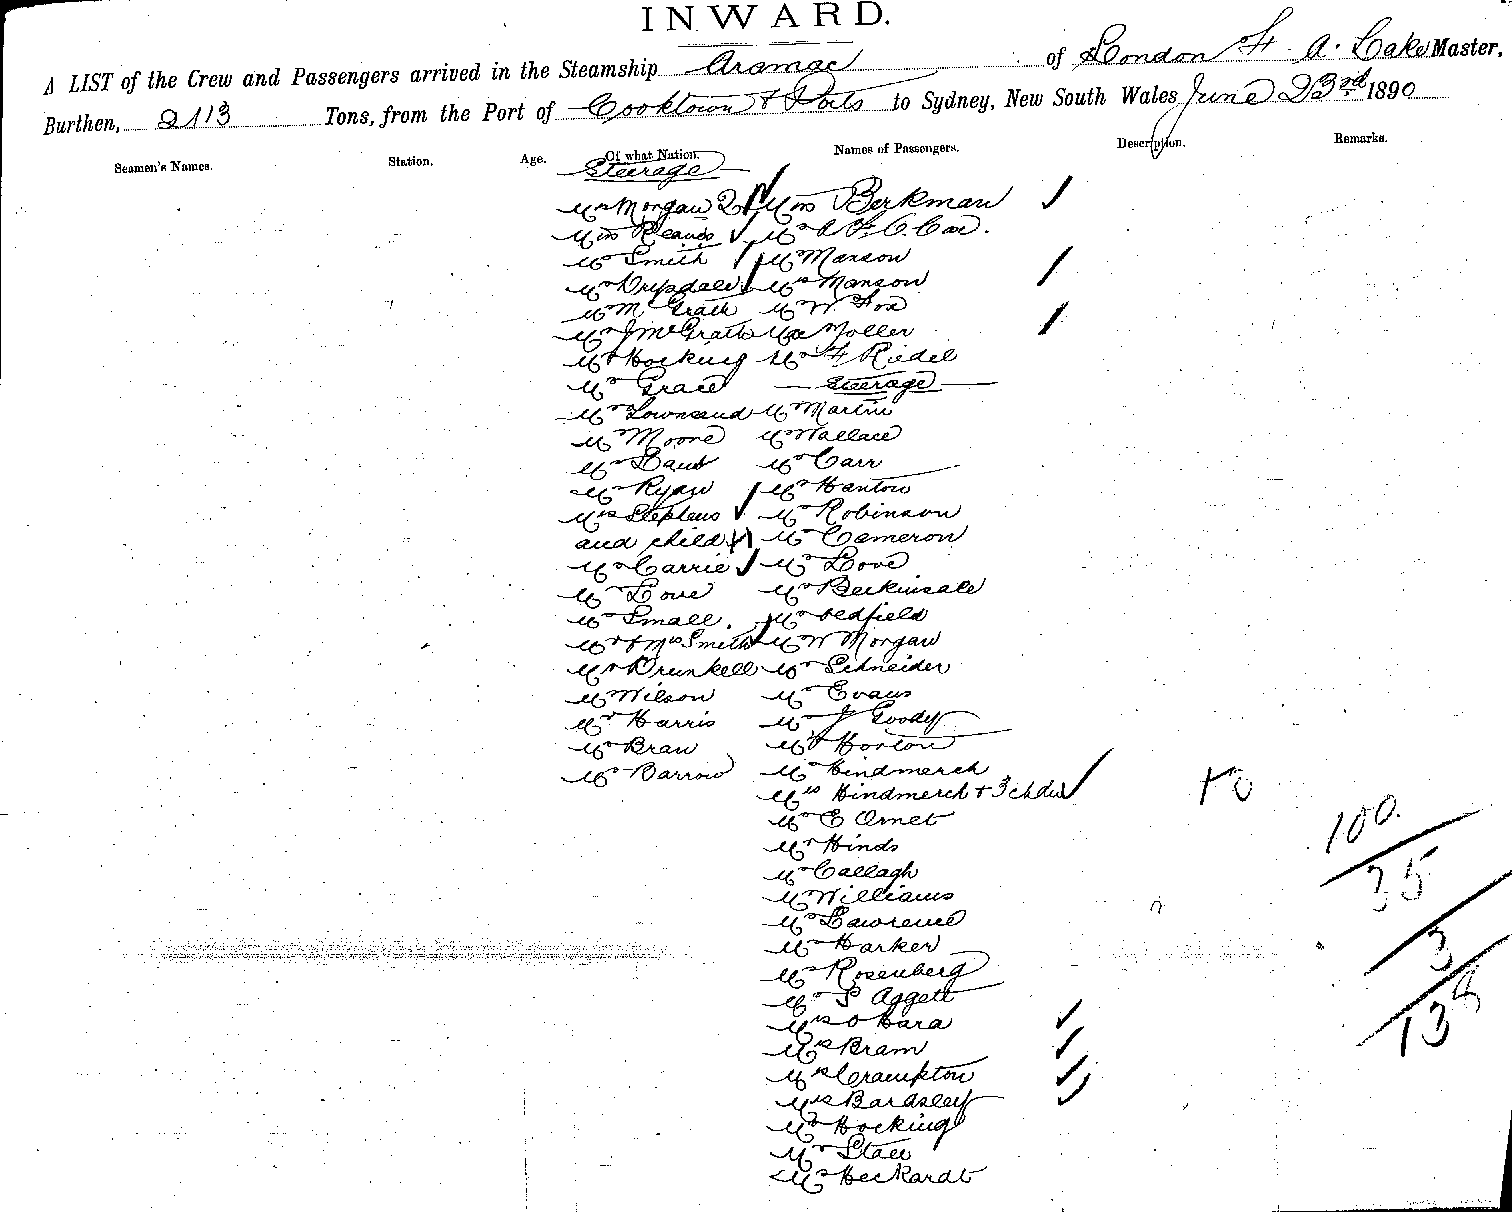 INWARD.
A LIST of the Crew and Passengers arrived in the Steamship Aramac of London F. A. Cake Master,
Burthen, 2113 Tons, from the Port of Cooktown & Ports to Sydney, New South Wales June 23rd 1890
Seamen's Names. Station. Age. Of what Nation. Names of Passengers. Description. Remarks.
Steerage
Mr Morgan
Mrs Reaves
Mr Smith
Mr Drysdale
Mr McGrath
Mr J McGrath
Mr Hocking
Mr Grace
Mr Townsend
Mr Moore
Mr
Mr Ryan
Mrs Stephens
and child
Mr Carrie
Mr Love
Mr Small.
Mr & Mrs Smith
Mr Drunkell
Mr Wilson
Mr Harris
Mr Bran
Mr Barrow
Miss Berkman
Mr A F. C. Cox.
Mr Manson
Mrs Manson
Mr W Fox
Moller
Mr F Riedel
Steerage
Mr Martin
Mr Wallace
Mr Carr
Mr Hanton
Mr Robinson
Mr Cameron
Mr Love
Mr Beckinsale
Mr Oldfield
Mr W Morgan
Mr Schneider
Mr Evans
Mr J Goody
Mr Horton
Mr Hindmerch
Mrs Hindmerch + 3 chdn
Mr E Ornet
Mr Hinds
Mr Callagh
Mr Williams
Mr Lawrence
Mr Harker
Mr Rosenberg
Mr S Aggett
Mrs O Hara
Mrs Bram
Mrs Crampton
Mrs Bardsley
Mr Hocking
Mr Stace
Mr Heckardt
100.
35
3
138